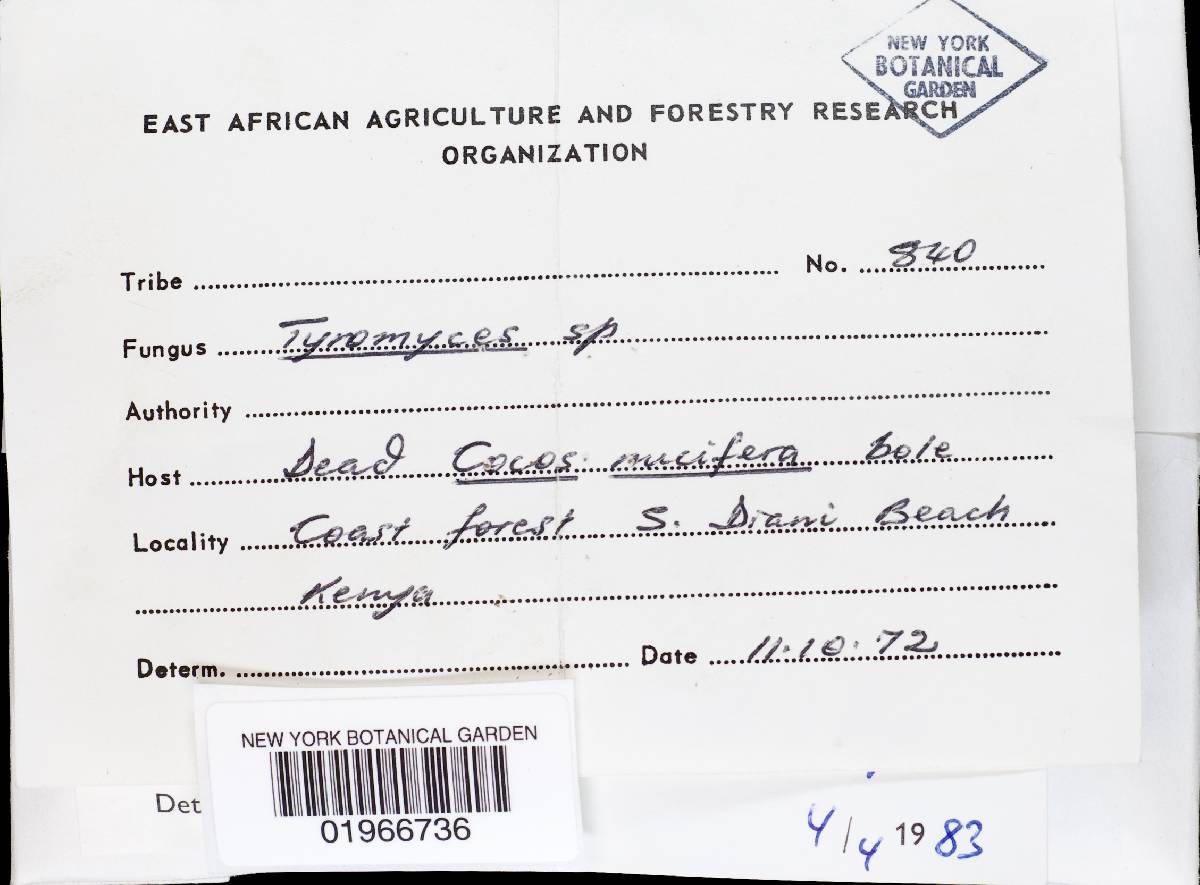 NEW YORK
BOTANICAL
GARDEN
EAST AFRICAN AGRICULTURE AND FORESTRY RESEARCH
ORGANIZATION
Tribe No. 840
Fungus Tyromyces sp
Authority
Host Dead Cocos nucifera bole
Locality Coast forest S. Diani Beach
Kenya
Determ. Date 11.10.72
NEW YORK BOTANICAL GARDEN
01966736
Det 4/4 1983